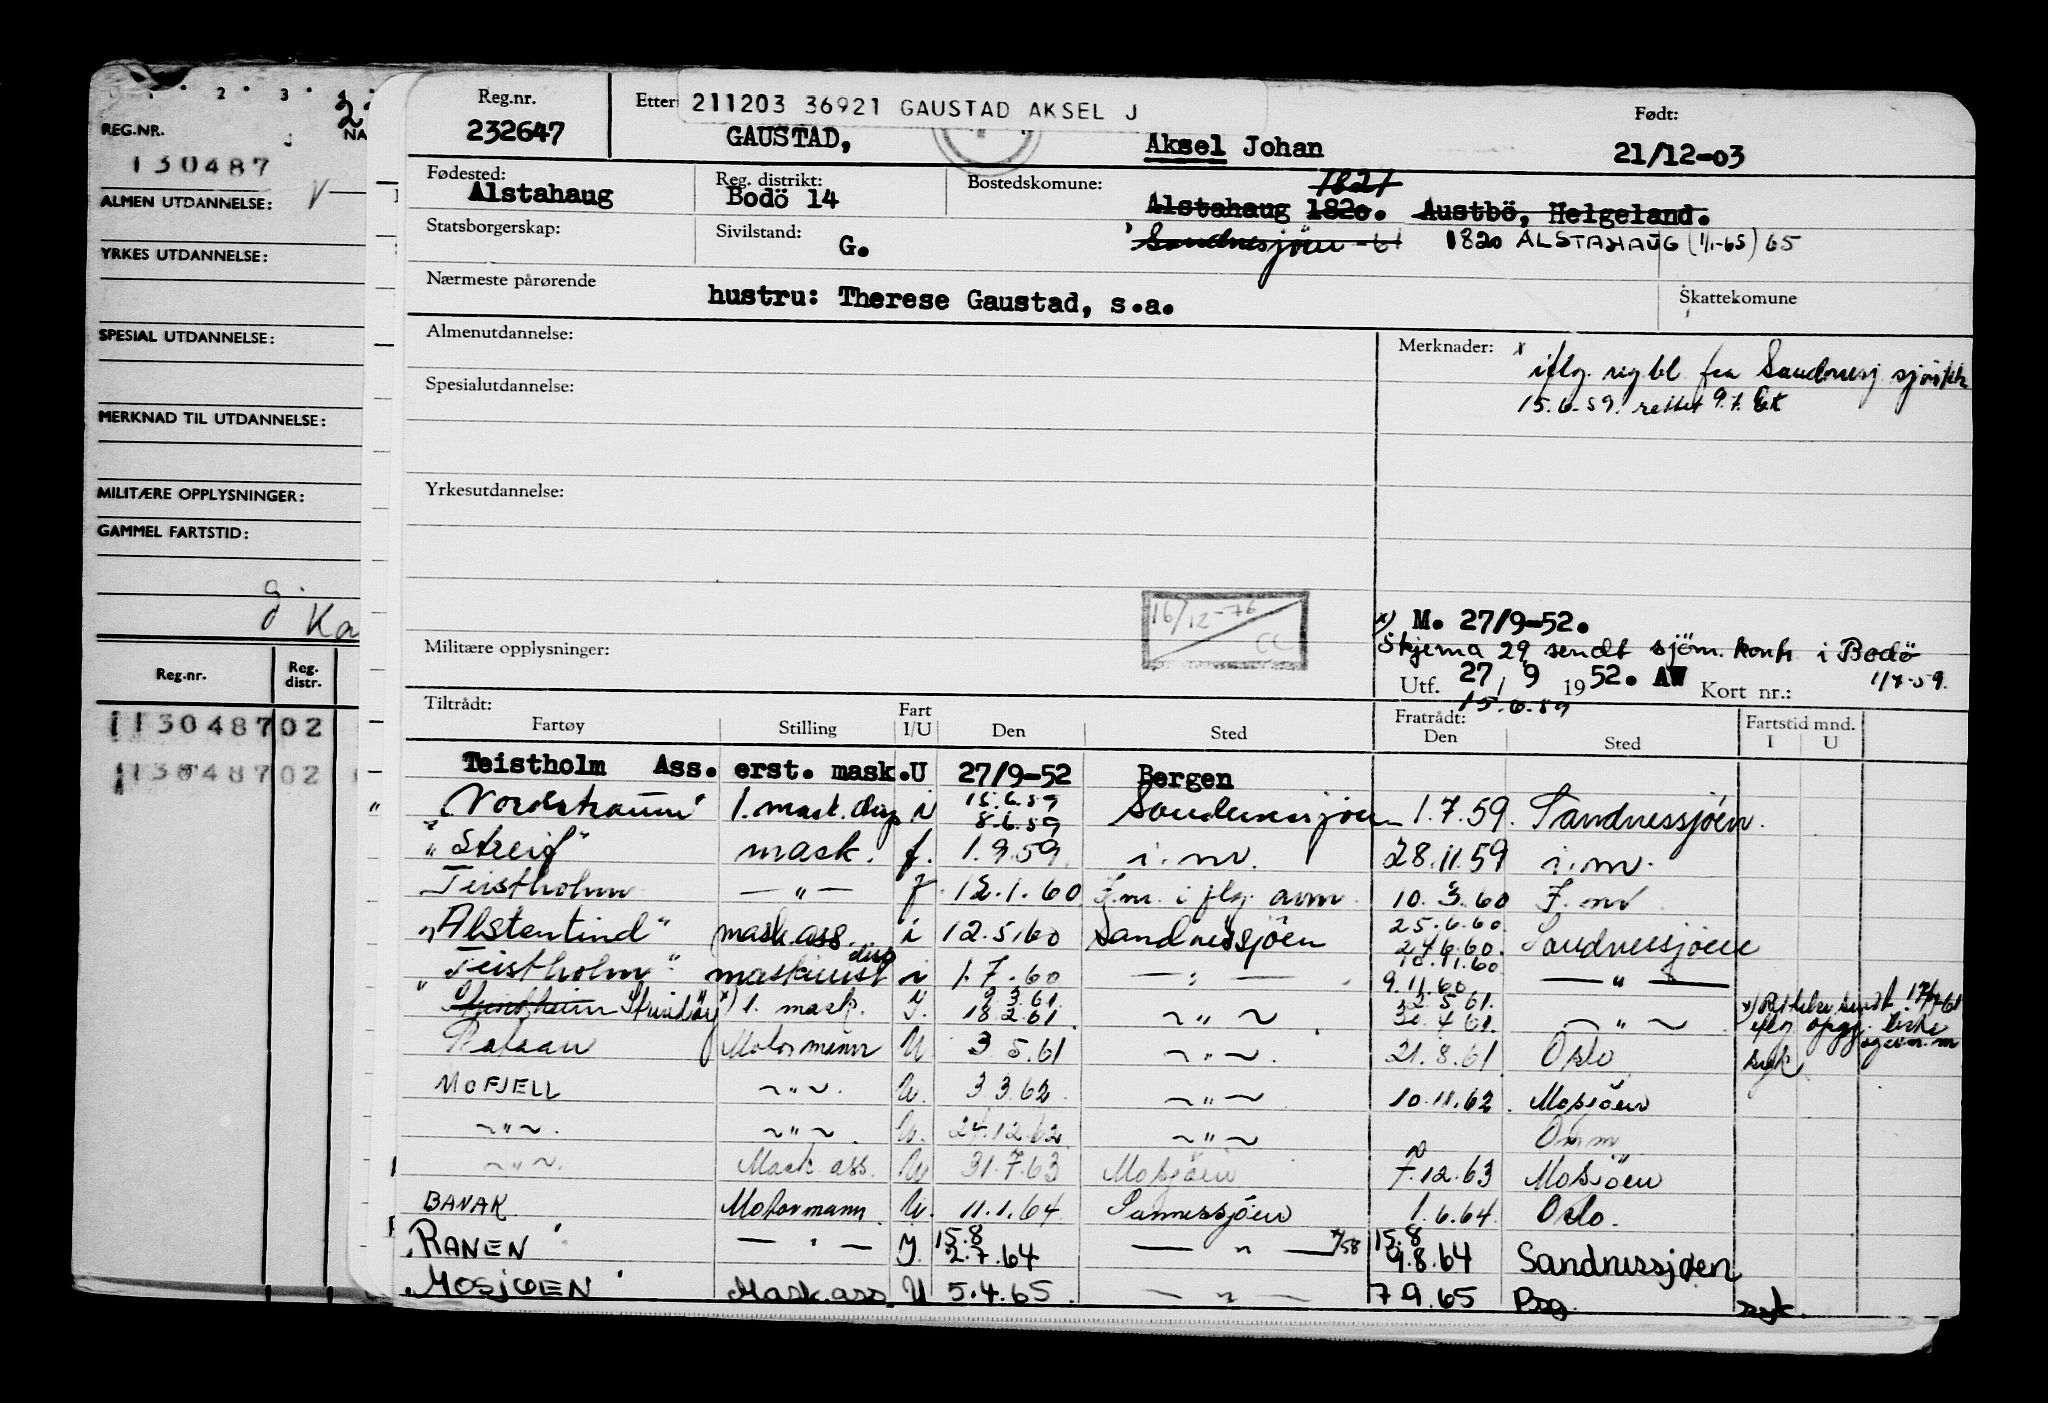 REG.NR.
NA
130487
ALMEN UTDANNELSE:
YRKES UTDANNELSE:
SPESIAL UTDANNELSE:
MERKNAD TIL UTDANNELSE:
MILITÆRE OPPLYSNINGER:
GAMMEL FARTSTID:
Reg.nr. Reg. distr.
113048702
113048702
Reg.nr. 232647
Etter 211203 36921 GAUSTAD AKSEL J
GAUSTAD, Aksel Johan
Født: 21/12-03
Fødested: Alstahaug
Reg. distrikt: Bodö 14
Bostedskommune: 1821
Alstahaug 1820. Austbö, Helgeland.
Statsborgerskap:
Sivilstand: G.
Sandnessjöen -61 1820 ALSTAHAUG (1/1-65) 65
Nærmeste pårørende hustru: Therese Gaustad, s.a.
Skattekomune
Almenutdannelse:
Merknader: x iflg. reg.bl. fra Sandnesj.
15.6.59. rettet 9.7.
Spesialutdannelse:
Yrkesutdannelse:
16/12-76 CC
Militære opplysninger:
x) M. 27/9-52.
Skjema 29 sendt sjöm. kont. i Bodö
1/7-59.
Utf. 27/9 1952. AW Kort nr.:
15.6.59
Tiltrådt: Fartøy Stilling Fart I/U Den Sted Fratrådt: Den Sted Fartstid mnd. I U
Teistholm Ass. erst. mask. U 27/9-52 Bergen
"Nordstraum" 1. mask. disp i 15.6.59 8.6.59 Sandnessjöen 1.7.59. Sandnessjöen.
"Streif" mask. f. 1.9.59 i.m. 28.11.59 i.m.
Teistholm — " — f. 12.1.60 10.3.60
"Alstentind" mask.ass. i 12.5.60 Sandnessjöen 25.6.60 27.6.60. Sandnessjöen
"Teistholm" maskinist disp i 1.7.60 — " — 10.11.60 9.11.60 — " —
x) 1. mask. 9.3.61 18.2.61 ~ " ~ 2.5.61. 30.4.61 ~ " ~
Rataan Motormann U 3.5.61 ~ " ~ 21.8.61 Oslo syk
MOFJELL ~ " ~ U. 3.3.62 ~ " ~ 10.11.62 Mosjöen
~ " ~ ~ " ~ U. 27.12.62 ~ " ~ Om m
~ " ~ Mask ass. U 31.7.63 Mosjöen 7.12.63 Mosjöen
BANAK Motormann U. 11.1.64 Sannessjöen 1.6.64. Oslo.
RANEN — " — I. 15.8 2.7.64 — " — 7/58 15.8 9.8.64 Sandnessjøen
MOSJØEN Mask.ass. U 5.4.65. — " — 7.9.65 Psg. syk.